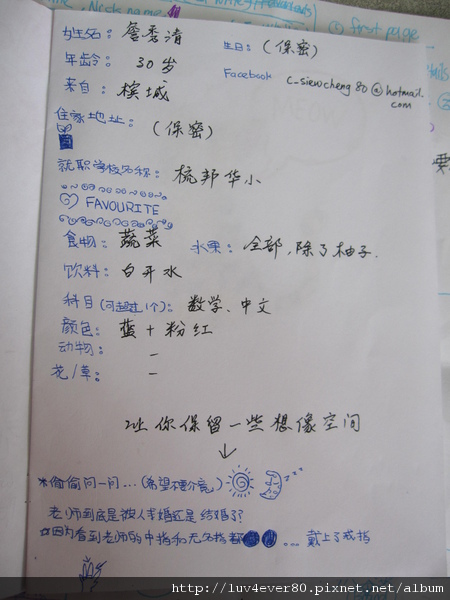 Neck name
first page
姓名: 詹秀清 生日: (保密)
年龄: 30岁 Facebook c-siewcheng80@hotmail.com
来自: 槟城
住家地址: (保密)
就职学校名称: 梳邦华小
FAVOURITE
食物: 蔬菜 水果: 全部,除了柚子.
饮料: 白开水
科目(可超过1个): 数学、中文
颜色: 蓝+粉红
动物: —
花/草: —
让你保留一些想像空间
↓
*偷偷问一问...(希望不要介意) zzz
老师到底是被人订婚还是结婚了?
因为看到老师的中指和无名指都 ... 戴上了戒指
http://luv4ever80.pixnet.net/album